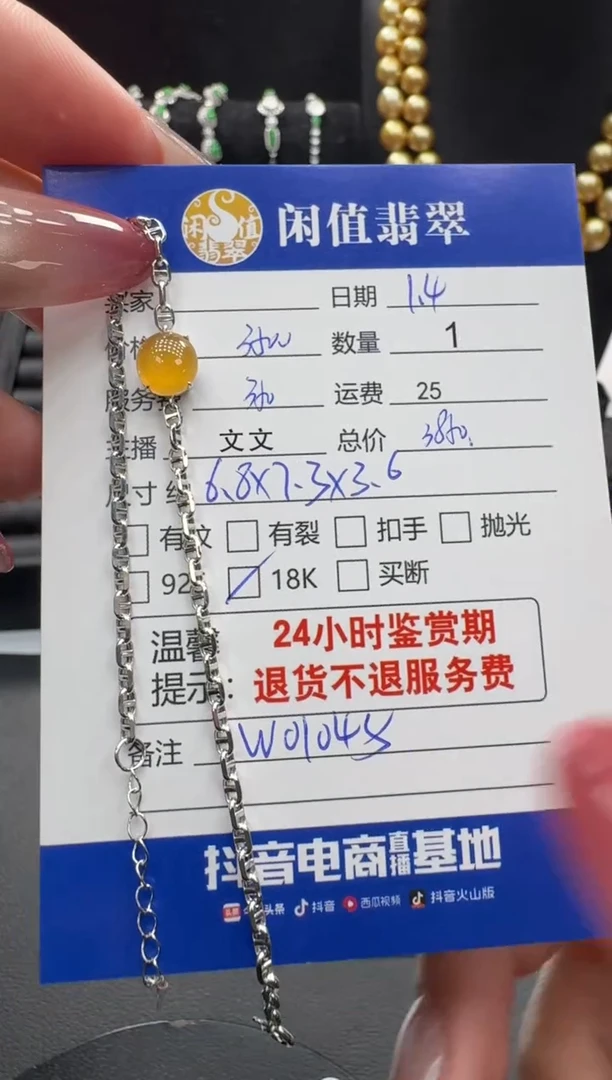 闲值翡翠
闲值翡翠
买家 日期 1.4
价格 数量 1
服务费 运费 25
主播 文文 总价
尺寸 6.8x7.3x3.6
有纹 有裂 扣手 抛光
92 18K 买断
温馨 24小时鉴赏期
提示: 退货不退服务费
备注 W0104
抖音电商直播基地
头条 抖音 西瓜视频 抖音火山版